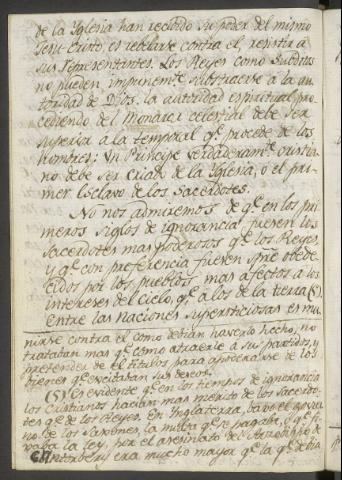 de la Iglesia han recibido su poder del mismo
Jesu-Cristo, es rebelarse contra el resistir á
sus representantes. Los Reyes como subditos
no pueden impunemte. substraerse à la au-
toridad de Dios. La autoridad espiritual pro-
cediendo del Monarca celestial debe ser
superior à la temporal qe. procede de los
hombres: Un Principe verdaderamte. cristia-
no debe ser criado de la Iglesia, ó el pri-
mer Esclavo de los Sacerdotes.
No nos admiremos de qe. en los pri-
meros siglos de ignorancia fuesen los
Sacerdotes mas poderosos qe. los Reyes,
y qe. con preferencia fuesen spre. obede-
cidos por los pueblos mas afectos à los
intereses del cielo, qe. à los de la tierra (5).
Entre las naciones supersticiosas es mu
nirse contra el como debian haverlo hecho, no
trataban mas qe. como atraerle à sus partidos, y
pretendér de él titulos para apoderarse de los
bienes qe. escitaban sus deseos.
(5) Es evidente qe. en los tiempos de ignorancia
los Cristianos hacian mas merito de los Sacerdo-
tes qe. de los Reyes. En Inglaterra, baxo el govier-
no de los Saxones, la multa qe. se pagaba,
ba la ley, por el asesinato del Arzobispo de
Cantorbery era mucho mayor qe. la qe. debia